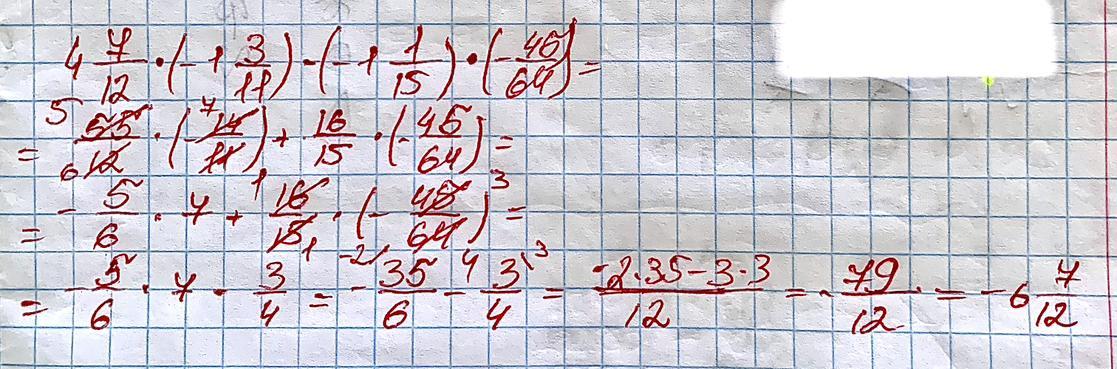 4 7/12 · (-1 3/11) - (-1 1/15) · (-45/64) =
= 55/12 · (-14/11) + 16/15 · (-45/64) =
= -5/6 · 7 + 16/15 · (-45/64) =
= -5/6 · 7 - 3/4 = -35/6 - 3/4 = (-2·35-3·3)/12 = -79/12 = -6 7/12